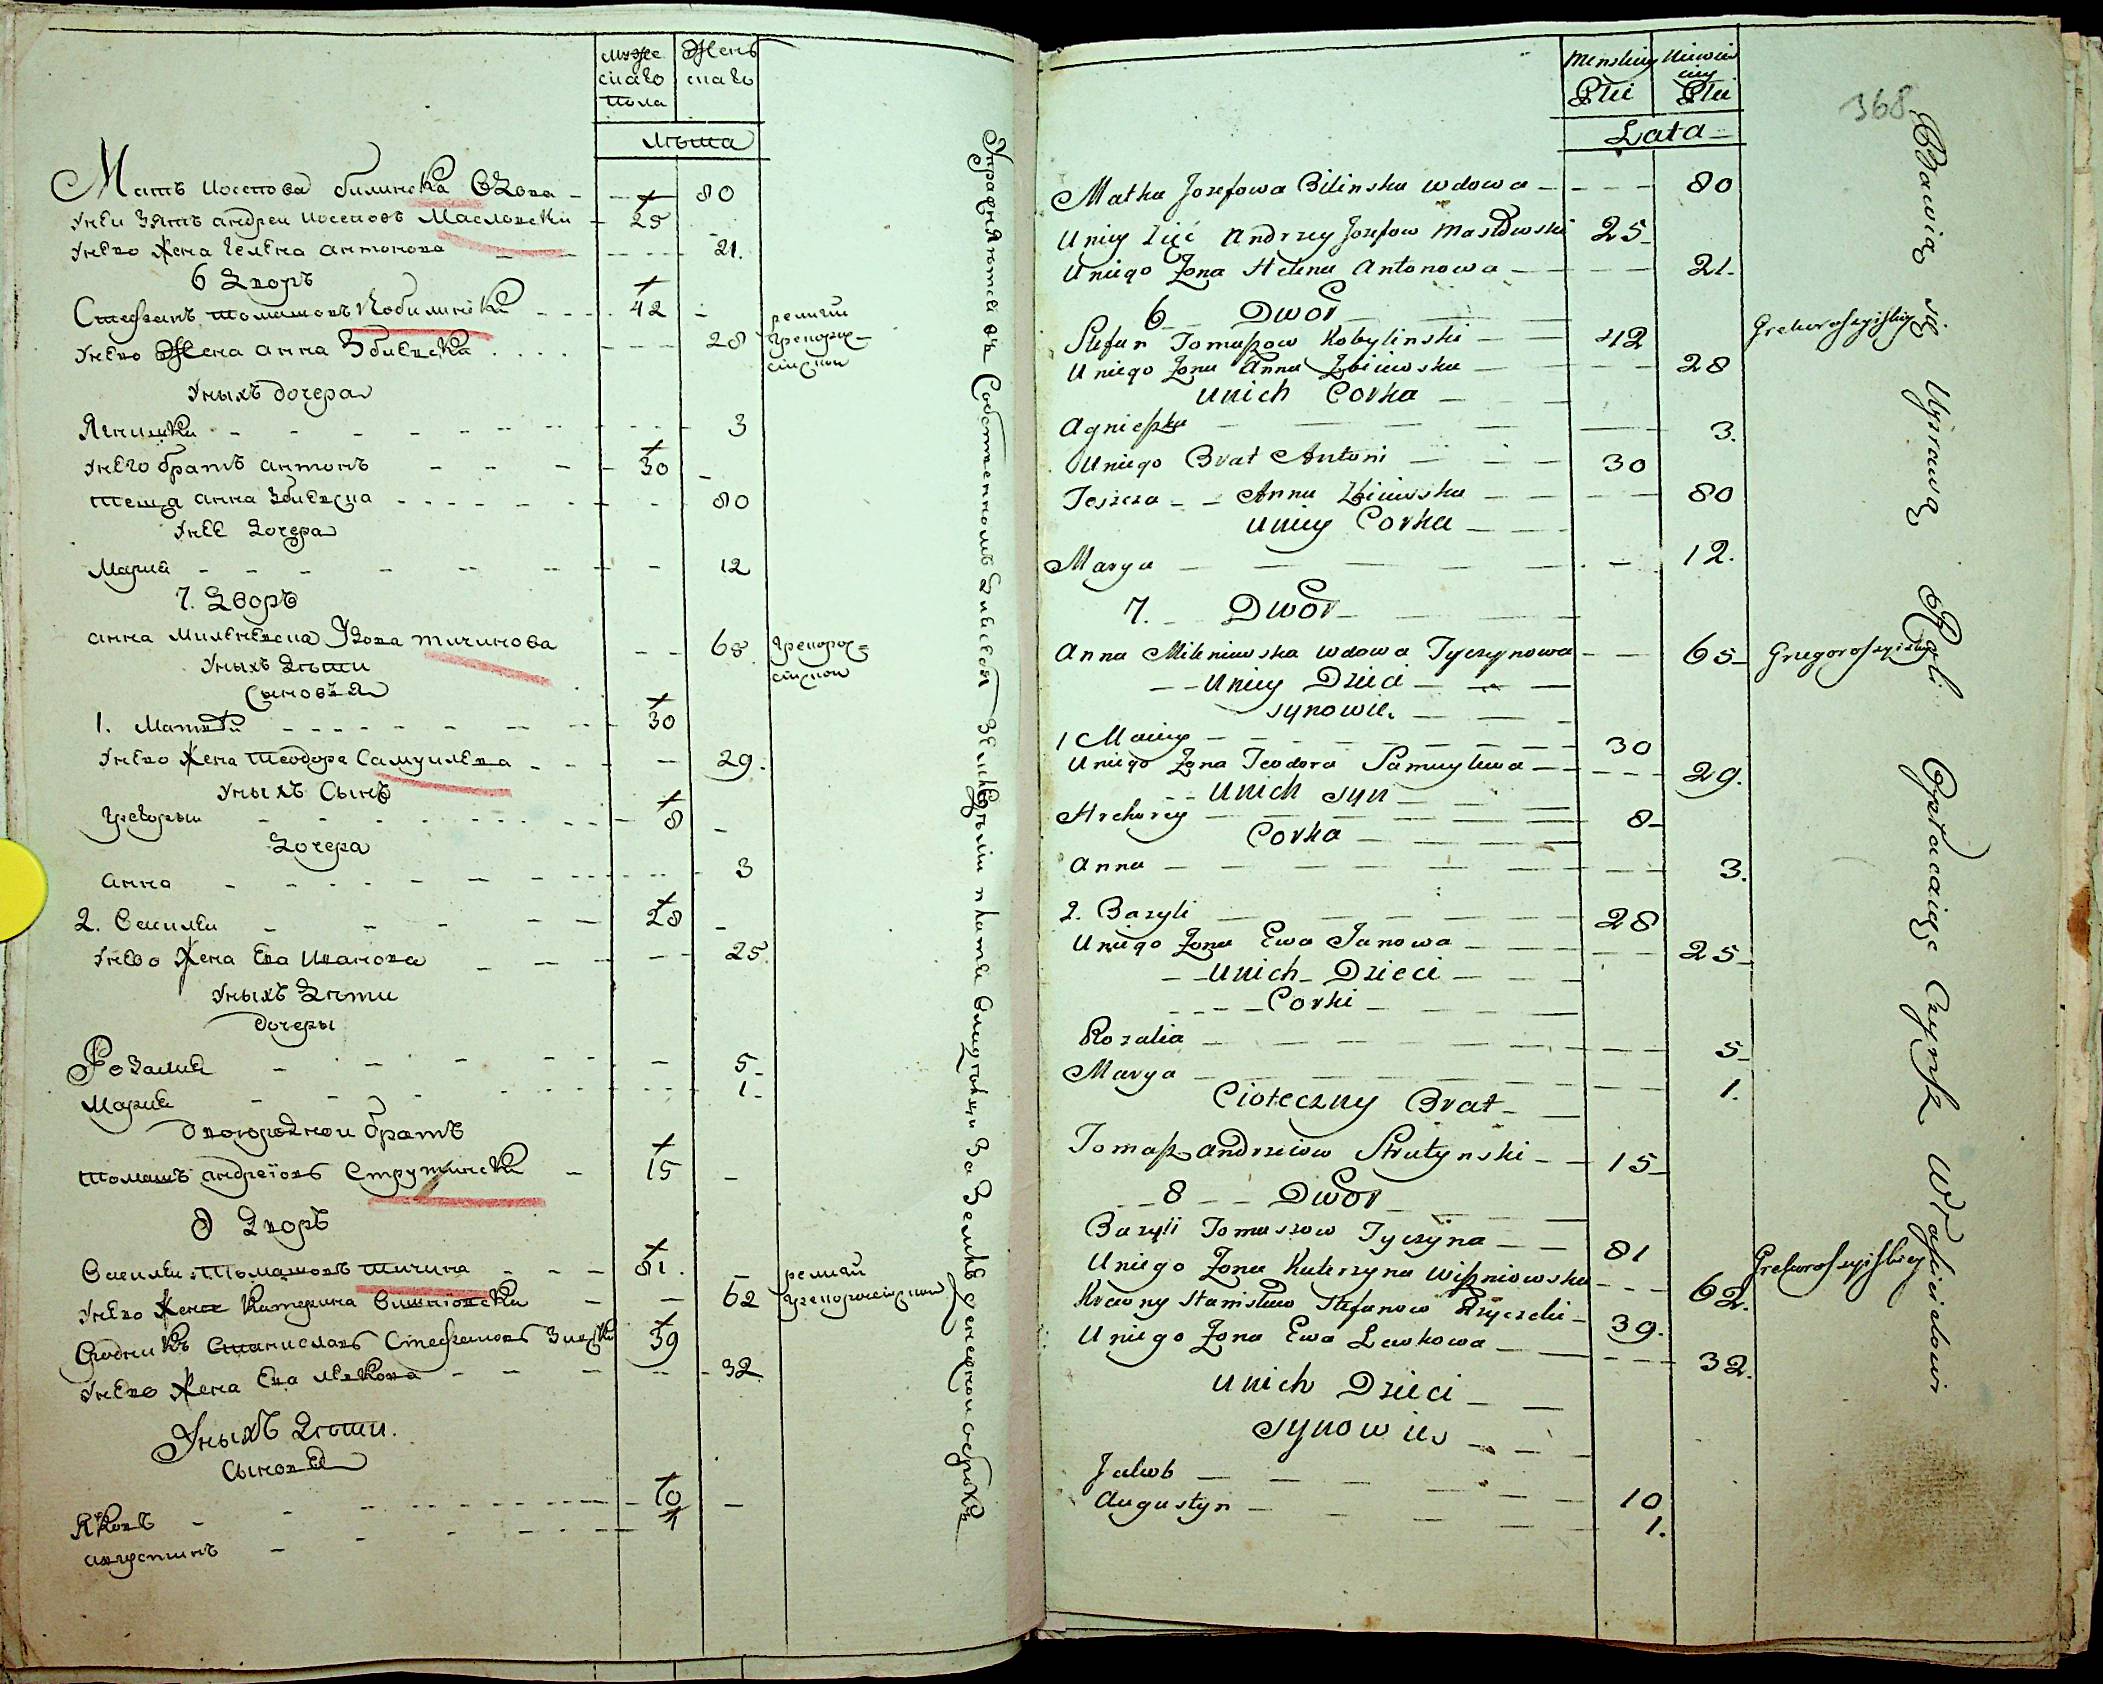 муже
скаго
пола
Жень
скаго
Лѣта
Мать Иосепова билинска вдова 80
унеи Зять андреи иосеповъ Масловски 25
унево жена Гелена антонова 21.
6 Дворъ
Стефанъ томашовъ Кобилински 42
религии
грекорос=
сииской
унево Жена анна Збиевска 28
уныхъ дочера
Ягнишка 3
унего братъ антонъ 30
теща анна Збиевска 80
унее дочера
Мария 12
7. Дворъ
анна Миленевска Удова тичинова 68
грекорос=
сииской
уныхъ Дѣти
сыновья
1. Матвѣи 30
унево жена теодора Самуилева 29.
уныхъ Сынъ
Грегорыи 8
дочера
анна 3
2. Василеи 28
унево жена Ева Иванова 25.
уныхъ Дѣти
дочеры
Розалия 5
Мария 1
двоюродной братъ
томашъ андреiовъ Струтински 15
8 Дворъ
Василеи томашовъ тичина 81.
религии
грекороссииской
унево жена Катерина вишнiовска 62
сродникъ станиславъ Стефановъ 39
унево жена Ева левкова 32.
уныхъ Дѣти.
сыновья
Яковъ 10
августинъ 1
Menskiey
Płci
Niewies
ciey
Płci
Lata
368
Matka Jozefowa Bilinska wdowa 80
Uniey Zięć Andrzey Jozefow Masłowski 25
Uniego Zona Helena Antonowa 21.
6 Dwor
Stefan Tomaszow Kobylinski 42
Grekorossyiskiey
Uniego Zona Anna Zbiiewska 28
Unich Corka
Agnieszka 3.
Uniego Brat Antoni 30
Teszcza Anna Zbiiewska 80
Uniey Corka
Marya 12.
7. Dwor
Anna Mileniewska wdowa Tyczynowa 65
Gregorossyiskiey
Uniey Dzieci
Synowie.
1 Maciey 30
Uniego Zona Teodora Samuylewa 29.
Unich syn
Hrehorey 8
Corka
Anna 3.
2. Bazyli 28
Uniego Zona Ewa Janowa 25
Unich Dzieci
Corki
Rozalia 5
Marya 1.
Cioteczny Brat
Tomasz Andrzeiow Strutynski 15
8 Dwor
Bazyli Tomaszow Tyczyna 81
Uniego Zona Katerzyna Wiszniowska 62.
Grekorossyiskiey
Krewny Stanisław Stefanow 39.
Uniego Zona Ewa Lewkowa 32.
Unich Dzieci
Synowie
Jakob 10
Augustyn 1.
Bawią się Uprawą Roli Opłacaiąc Czynsz Właścicielowi